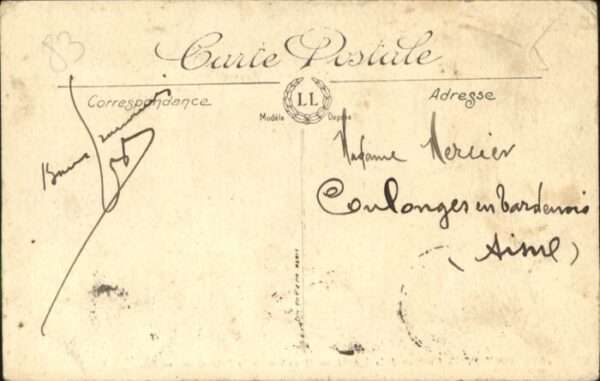 83
Carte Postale
Correspondance
LL
Modèle Déposé
Adresse
Madame Mercier
Coulonges en Tardenois
(Aisne)